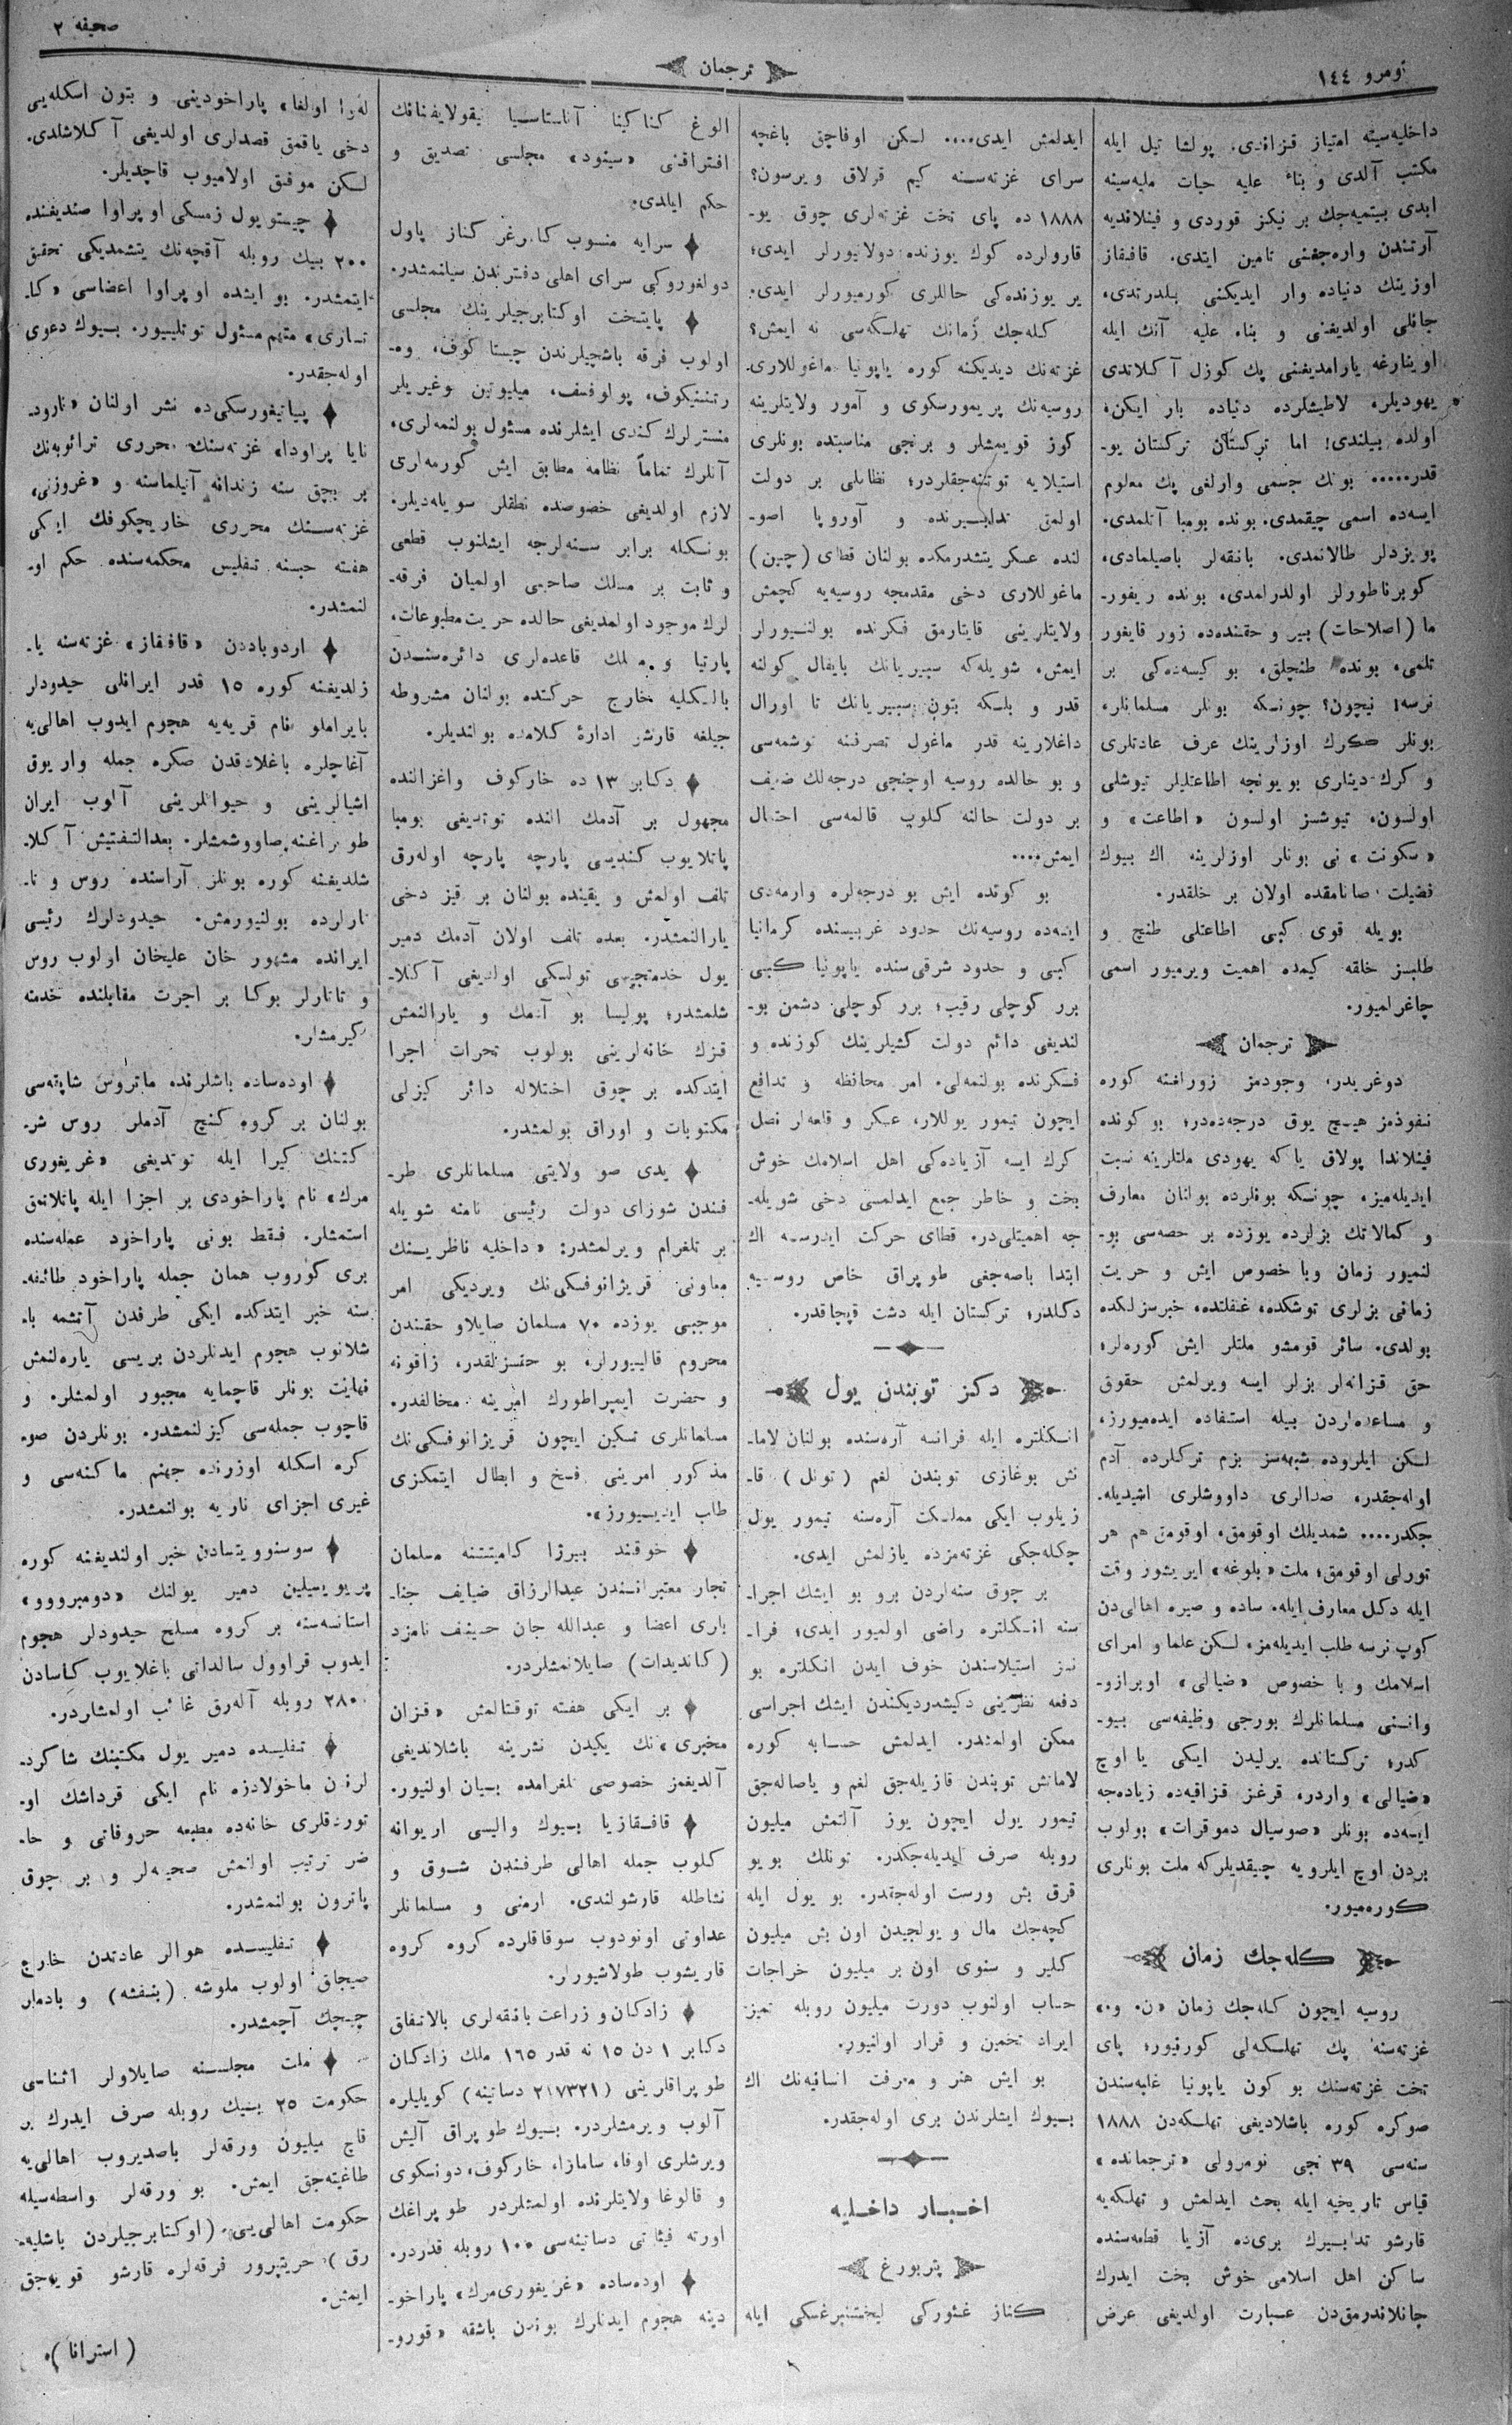 صحیفه ۲
ترجمان
نومرو ١٤٤
داخلیه‌سینه امتیاز قزاندی. پولشا تیل ایله
مکتب آلدی و بناءً علیه حیات ملیه‌سینه
ابدی بیتمیه‌جك بر نیکز قوردی و فینلاندیه
آرتندن واره‌جغنی تامین ایتدی. قافقاز
اوزینك دنیاده وار ایدیکنی بلدرتدی،
جانلی اولدیغنی و بناء علیه آنك ایله
اوینارغه یارامدیغنی پك کوزل آکلاتدی
یهودیلر، لاطیشلرده دنیاده بار ایکن،
اولده بیلندی؛ اما ترکستان ترکستان یو-
قدر..... بونك جسمی وارلغی پك معلوم
ایسه‌ده اسمی چیقمدی. بونده بومبا آتلمدی.
پویزدلر طالانمدی. بانقه‌لر باصیلمادی،
کوبرناطورلر اولدرلمدی، بونده ریفور-
ما (اصلاحات) بیر و حقنده‌ده زور قایغور
تلمی، بونده طنچلق، بو کیسه‌ده‌کی بر
نرسه! نیچون؟ چونکه بونلر مسلمانلر،
بونلر کرك اوزلرینك عرف عادتلری
و کرك دینلری بویونجه اطاعتلیلر تیوشلی
اولسون، تیوشسز اولسون «اطاعت» و
«سکونت» نی بونلر اوزلرینه اك بیوك
فضیلت صانامقده اولان بر خلقدر.
بویله قوی کبی اطاعتلی طنچ و
طلبسز خلقه کیمده اهمیت ویرمیور اسمی
چاغرلمیور.
ترجمان
دوغریدر، وجودمز زورافته کوره
نفوذمز هیچ یوق درجه‌ده‌در؛ بو کونده
فینلاندا پولاق یا که یهودی ملتلرینه نسبت
ایدیله‌میز، چونکه بونلرده بولنان معارف
و کمالاتك بزلرده یوزده بر حصه‌سی بو-
لنمیور زمان وبا خصوص ایش و حریت
زمانی بزلری توشکده، غفلتده، خبرسزلکده
بولدی. سائر قومشو ملتلر ایش کوره‌لر،
حق قزانه‌لر بزلر ایسه ویرلمش حقوق
و مساعده‌لردن بیله استفاده ایده‌میورز،
لکن ایلروده شبهه‌سز بزم ترکلرده آدم
اوله‌جقدر، صدالری داووشلری اشیدیله-
جکدر.... شمدیلك اوقومق، اوقومق هم هر
تورلی اوقومق؛ ملت «بلوغه» ایریشور وقت
ایله دکل معارف ایله، ساده و صبره اهالی‌دن
کوپ نرسه طلب ایدیله‌مز، لکن علما و امرای
اسلامك و با خصوص «ضیالی» اوبرازو-
وانی مسلمانلرك بورجی وظیفه‌سی بیو-
کدر؛ ترکستانده یرلیدن ایکی یا اوچ
«ضیالی» واردر، قرغز قزاقیه‌ده زیاده‌جه
ایسه‌ده بونلر «صوسیال دموقرات» بولوب
بردن اوچ ایلرویه چیقدیلر که ملت بونلری
کوره‌میور.
کله‌جك زمان
روسیه ایچون کله‌جك زمان «ن. و.»
غزته‌سنه پك تهلکه‌لی کورقیور؛ پای
تخت غزته‌سنك بو کون یاپونیا غلبه‌سندن
صوکره کوره باشلادیغی تهلکه‌دن ١٨٨٨
سنه‌سی ٣٩ نجی نومرولی «ترجمانده»
قیاس تاریخیه ایله بحث ایدلمش و تهلکه‌یه
قارشو تدابیرك بری‌ده آزیا قطعه‌سنده
ساکن اهل اسلامی خوش بخت ایدرك
جانلاندرمق‌دن عبارت اولدیغی عرض
ایدلمش ایدی.... لکن اوفاجق باغچه
سرای غزته‌سنه کیم قولاق ویرسون؟
١٨٨٨ ده پای تخت غزته‌لری چوق یو-
قارولرده کوك یوزنده دولانیورلر ایدی؛
یر یوزنده‌کی حاللری کورمیورلر ایدی.
کله‌جك زمانك تهلکه‌سی نه ایمش؟
غزته‌نك دیدیکنه کوره یاپونیا ماغوللاری
روسیه‌نك پریمورسکوی و آمور ولایتلرینه
کوز قویمشلر و برنجی مناسبتده بونلری
استیلایه توتنه‌جقلردر؛ نظاملی بر دولت
اولمق تدابیرنده و آوروپا اصو-
لنده عسکر یتشدرمکده بولنان قطای (چین)
ماغوللاری دخی مقدمجه روسیه‌یه کچمش
ولایتلرینی قایتارمق فکرنده بولنیورلر
ایمش، شویله‌که سیبریانك بایقال کولنه
قدر و بلکه بتون سیبریانك تا اورال
داغلارینه قدر ماغول تصرفنه توشمه‌سی
و بو حالده روسیه اوچنجی درجه‌لك ضعیف
بر دولت حالنه کلوب قالمه‌سی احتمال
ایمش....
بو کونده ایش بو درجه‌لره وارمه‌دی
ایسه‌ده روسیه‌نك حدود غربیسنده کرمانیا
کبی و حدود شرقی‌سنده یاپونیا کبی
برر کوچلی رقیب؛ برر کوچلی دشمن بو-
لندیغی دائم دولت کشیلرینك کوزنده و
فکرنده بولنمه‌لی. امر محافظه و تدافع
ایچون تیمور یوللار، عسکر و قلعه‌لر نصل
کرك ایسه آزیاده‌کی اهل اسلامك خوش
بخت و خاطر جمع ایدلمسی دخی شویله-
جه اهمیتلی‌در. قطای حرکت ایدرسه اك
ابتدا باصه‌جغی طوپراق خاص روسیه
دکلدر؛ ترکستان ایله دشت قپچاقدر.
دکز توبندن یول
انکلتره ایله فرانسه آره‌سنده بولنان لاما-
نش بوغازی توبندن لغم (تونل) قا-
زیلوب ایکی مملکت آره‌سنه تیمور یول
چکله‌جکی غزته‌مزده یازلمش ایدی.
بر چوق سنه‌لردن برو بو ایشك اجرا-
سنه انکلتره راضی اولمیور ایدی؛ فرا-
نسز استیلاسندن خوف ایدن انکلتره بو
دفعه نظرینی دکیشدردیکندن ایشك اجراسی
ممکن اولمشدر. ایدلمش حسابه کوره
لامانش توبندن قازیله‌جق لغم و یاصاله‌جق
تیمور یول ایچون یوز آلتمش میلیون
روبله صرف ایدیله‌جکدر. تونلك بویو
قرق بش ورست اوله‌جقدر. بو یول ایله
کچه‌جك مال و یولجیدن اون بش میلیون
کلیر و سنوی اون بر میلیون خراجات
حساب اولنوب دورت میلیون روبله تمیز
ایراد تخمین و قرار اولنیور.
بو ایش هنر و معرفت انسانیه‌نك اك
بیوك ایشلرندن بری اوله‌جقدر.
اخبار داخلیه
پتربورغ
کناز غئورکی لیختنبرغسکی ایله
الوغ کناکینا آناستاسیا نیقولایفنانك
افتراقنی «سینود» مجلسی تصدیق و
حکم ایلدی.
سرایه منسوب کامرغر کناز پاول
دولغوروکی سرای اهلی دفترندن سیلنمشدر.
پایتخت اوکتابرجیلرینك مجلسی
اولوب فرقه باشچیلرندن چیستاکوف، وه-
رتننیکوف، پولوفسف، میلیوتین وغیریلر
منسترلرك کندی ایشلرنده مسئول بولنمه‌لری،
آنلرك تماماً نظامه مطابق ایش کورمه‌لری
لازم اولدیغی خصوصنده نطقلر سویله‌دیلر.
بونکله برابر سنه‌لرجه ایشلنوب قطعی
و ثابت بر مسلك صاحبی اولمیان فرقه-
لرك موجود اولمدیغی حالده حریت مطبوعات،
پارتیا و مسلك قاعده‌لری دائره‌سندن
بالکلیه خارج حرکتده بولنان مشروطه
جیلغه قارشو ادارهٔ کلامده بولندیلر.
دکابر ١٣ ده خارکوف واغزالنده
مجهول بر آدمك النده توتدیغی بومبا
پاتلایوب کندیسی پارچه پارچه اوله‌رق
تلف اولمش و یقینده بولنان بر قیز دخی
یارالنمشدر. بعده تلف اولان آدمك دمیر
یول خدمتچیسی تولسکی اولدیغی آکلا-
شلمشدر؛ پولیسا بو آدمك و یارالنمش
قزك خانه‌لرینی بولوب تحرات اجرا
ایتدکده بر چوق اختلاله دائر کیزلی
مکتوبات و اوراق بولمشدر.
یدی صو ولایتی مسلمانلری طر-
فندن شورای دولت رئیسی نامنه شویله
بر تلغرام ویرلمشدر: «داخلیه ناظرینك
معاونی قریژانوفسکی‌نك ویردیکی امر
موجبی یوزده ٧٠ مسلمان صایلاو حقندن
محروم قالیورلر، بو حقسزلقدر، زاقونه
و حضرت ایمپراطورك امرینه مخالفدر.
مسلمانلری تسکین ایچون قریژانوفسکی‌نك
مذکور امرینی فسخ و ابطال ایتمکزی
طلب ایدیورز».
خوقند بیرژا کامیتتنه مسلمان
تجار معتبرانندن عبدالرزاق ضایف جنا-
بلری اعضا و عبدالله جان نامزد
(کاندیدات) صایلانمشلردر.
بر ایکی هفته توقتالمش «قزان
مخبری»نك یکیدن نشرینه باشلاندیغی
آلدیغمز خصوصی تلغرامده بیان اولنیور.
قافقازیا بیوك والیسی اریوانه
کلوب جمله اهالی طرفندن شوق و
نشاطله قارشولندی. ارمنی و مسلمانلر
عداوتی اونودوب سوقاقلرده کروه کروه
قاریشوب طولاشیورلر.
زادکان و زراعت بانقه‌لری بالاتفاق
دکابر ١ دن ١٥ نه قدر ١٦٥ ملك زادکان
طوپراقلرینی (٢١٧٣٢١ دساتینه) کویلیلره
آلوب ویرمشلردر. بیوك طوپراق آلیش
ویرشلری اوفا، سامارا، خارکوف، دونسکوی
و قالوغا ولایتلرنده اولمشلردر طوپراغك
اورته فیئاتی دساتینه‌سی ١٠٠ روبله قدردر.
اوده‌ساده «غریغوری مرك» پاراخو-
دینه هجوم ایدنلرك بوندن باشقه «قورو-
له‌وا اولغا» پاراخودینی و بتون اسکله‌یی
دخی یاقمق قصدلری اولدیغی آکلاشلدی.
لکن موفق اولامیوب قاچدیلر.
چیستوپول زمسکی اوپراوا صندیغنده
٢٠٠ بیك روبله آقچه‌نك یتشمدیکی تحقیق
ایتمشدر. بو ایشده اوپراوا اعضاسی «کا-
تسازی» متهم مسئول توتلیور. بیوك دعوی
اوله‌جقدر.
پیاتیغورسکی‌ده نشر اولنان «نارود-
نایا پراودا» غزته‌سنك محرری ترائوبه‌نك
بر بچق سنه زندانه آتیلماسنه و «غروزنی»
غزته‌سنك محرری خاریچکوفك ایکی
هفته حبسنه تفلیس محکمه‌سنده حکم او-
لنمشدر.
اردوباددن «قافقاز» غزته‌سنه یا-
زلدیغنه کوره ١٥ قدر ایرانلی حیدودلر
بایراملو نام قریه‌یه هجوم ایدوب اهالی‌یه
آغاچلره باغلادقدن صکره جمله وار یوق
اشیالرینی و حیوانلرینی آلوب ایران
طوپراغنه صاووشمشلر. بعدالتفتیش آکلا-
شلدیغنه کوره بونلر آراسنده روس و تا-
تارلرده بولنیورمش. حیدودلرك رئیسی
ایرانده مشهور خان علیخان اولوب روس
و تاتارلر بوکا بر اجرت مقابلنده خدمته
کیرمشلر.
اوده‌ساده باشلرنده ماتروس شاپقه‌سی
بولنان بر کروه کنج آدملر روس شر-
کتنك کیرا ایله توتدیغی «غریغوری
مرك» نام پاراخودی بر اجزا ایله پاتلاتمق
استمشلر. فقط بونی پاراخود عمله‌سنده
بری کوروب همان جمله پاراخود طائفه-
سنه خبر ایتدکده ایکی طرفدن آتشمه با-
شلانوب هجوم ایدنلردن بریسی یاره‌لنمش
نهایت بونلر قاچمایه مجبور اولمشلر. و
قاچوب جمله‌سی کیزلنمشدر. بونلردن صو-
کره اسکله اوزرنده جهنم ماکنه‌سی و
غیری اجزای ناریه بولنمشدر.
سوسنوویتسادن خبر اولندیغنه کوره
پریویسلین دمیر یولنك «دومبرووو»
استانسه‌سنه بر کروه مسلح حیدودلر هجوم
ایدوب قراوول سالداتی باغلایوب کاسادن
٢٨٠٠ روبله آله‌رق غائب اولمشلردر.
تفلیسده دمیر یول مکتبنك شاکرد-
لرندن ماخولادزه نام ایکی قرداشك او-
توردقلری خانه‌ده مطبعه حروفاتی و حا-
ضر ترتیب اولنمش صحیفه‌لر و بر چوق
پاترون بولنمشدر.
تفلیسده هوالر عادتدن خارج
صیجاق اولوب ملوشه (بنفشه) و بادملر
چیچك آچمشدر.
ملت مجلسنه صایلاولر اثناسی
حکومت ٢٥ بیك روبله صرف ایدرك بر
قاچ میلیون ورقه‌لر باصدیروب اهالی‌یه
طاغیته‌جق ایمش. بو ورقه‌لر واسطه‌سیله
حکومت اهالی‌یی (اوکتابرجیلردن باشلیه-
رق) حریتپرور فرقه‌لره قارشو قویه‌جق
ایمش.
(استرانا).